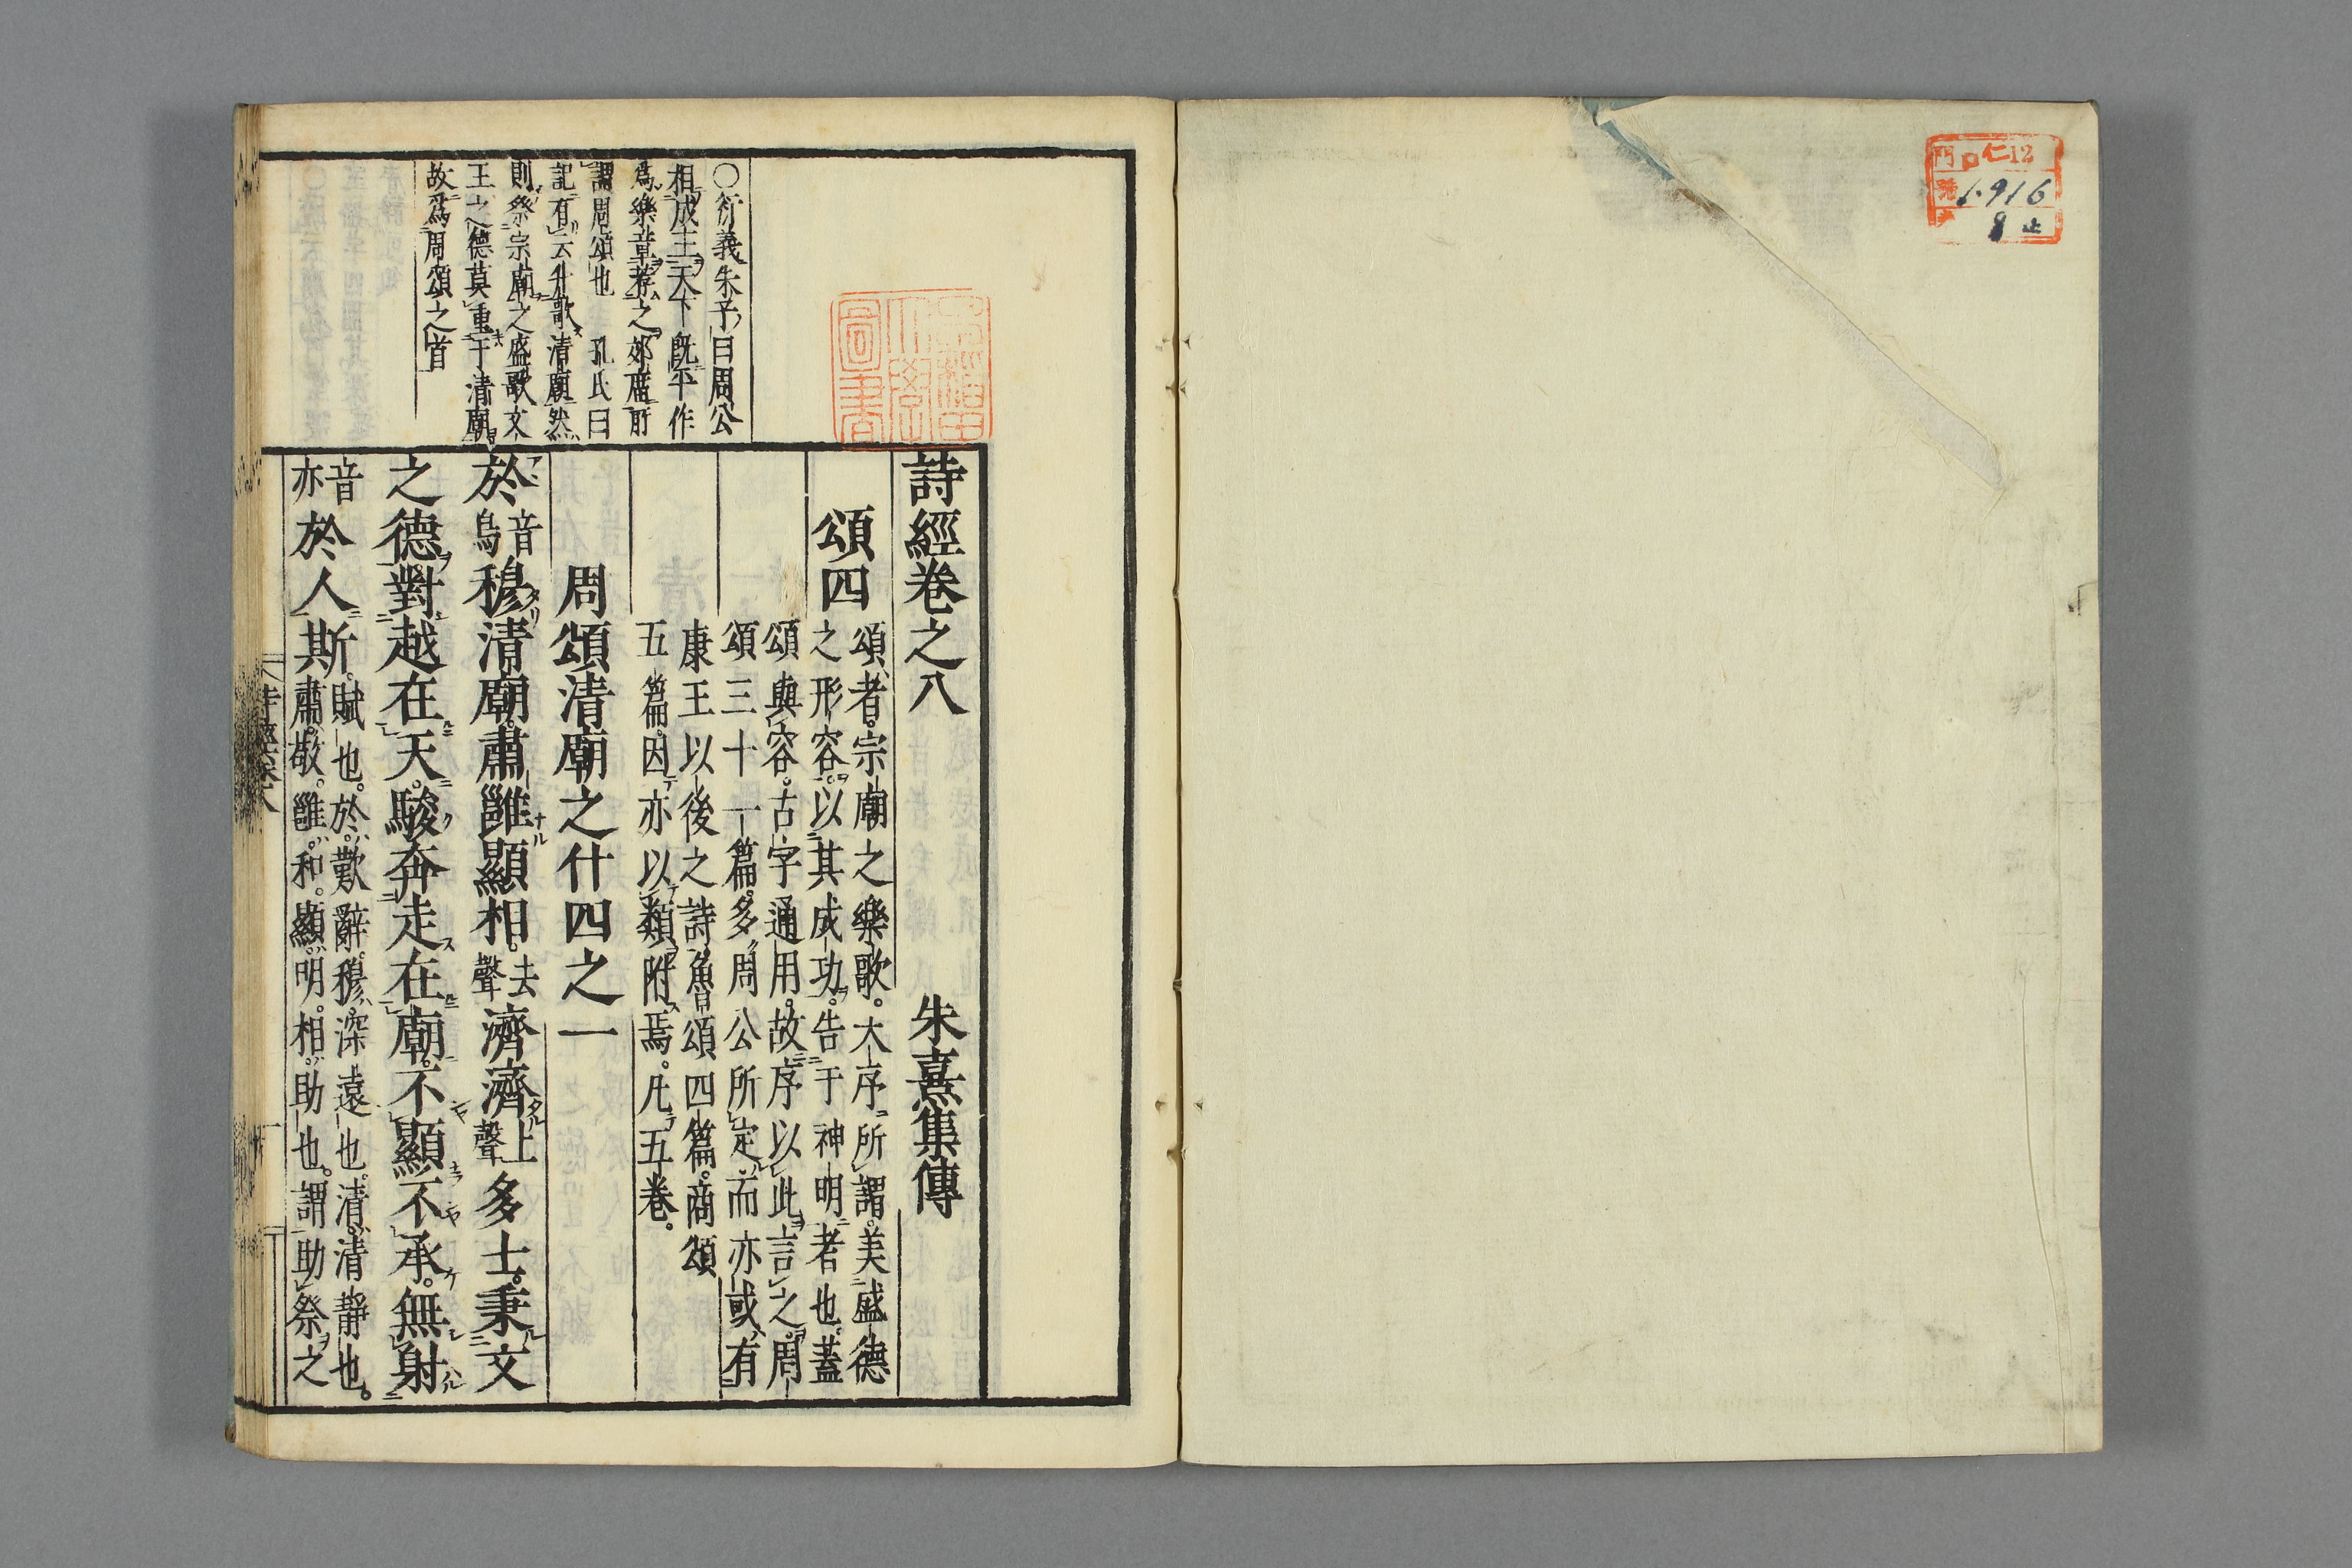 門 口仁12
號 1.916
8 止
早稲田大學圖書
○衍義朱子曰周公
相成王天下既平作
爲樂章荐之郊廟所
謂周頌也 孔氏曰
記有云升歌清廟然
則祭宗廟之盛歌文
王之德莫重于清廟
故爲周頌之首
詩經卷之八 朱熹集傳
頌四
頌者宗廟之樂歌。大序所謂美盛德
之形容。以其成功。告于神明者也。蓋
頌與容。古字通用。故序以此言之。周
頌三十一篇。多周公所定。而亦或有
康王以後之詩。魯頌四篇。商頌
五篇。因亦以類附焉。凡五卷。
周頌清廟之什四之一
於音烏穆清廟。肅雝顯相。去聲濟濟上聲多士。秉文
之德。對越在天。駿奔走在廟。不顯不承。無射
音亦於人斯。
賦也。於。歎辭。穆。深遠也。清。清靜也。
肅。敬。雝。和。顯。明。相。助也。謂助祭之